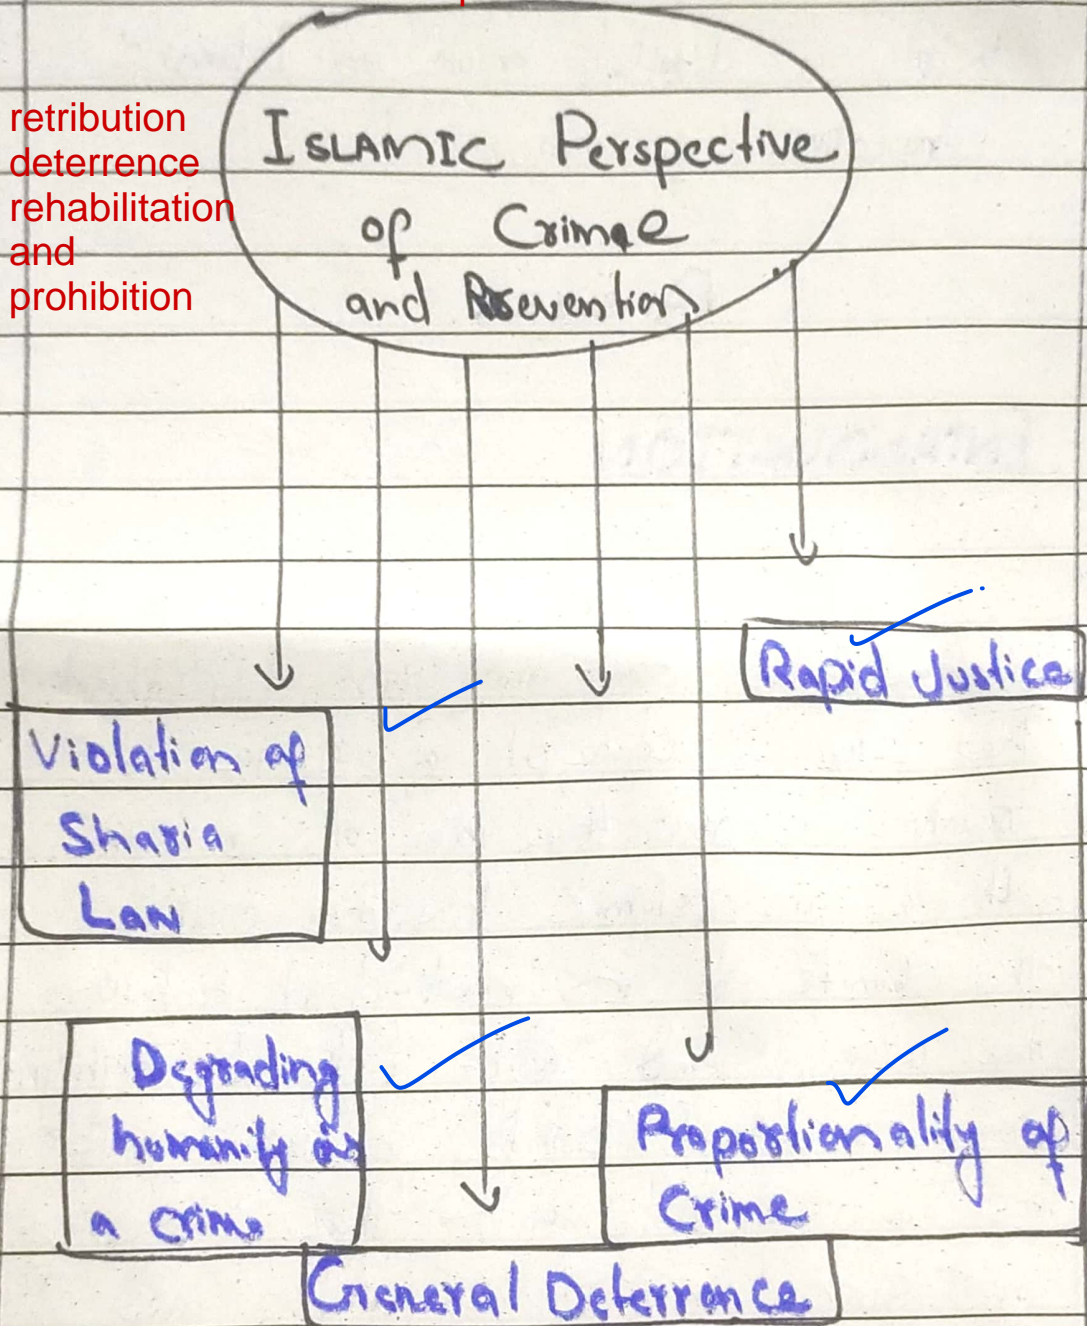 retribution
deterrence
rehabilitation
and
prohibition
ISLAMIC Perspective
of Crime
and Prevention
Rapid Justice
Violation of
Sharia
Law
Degrading
humanity as
a crime
Proportionality of
Crime
General Deterrence